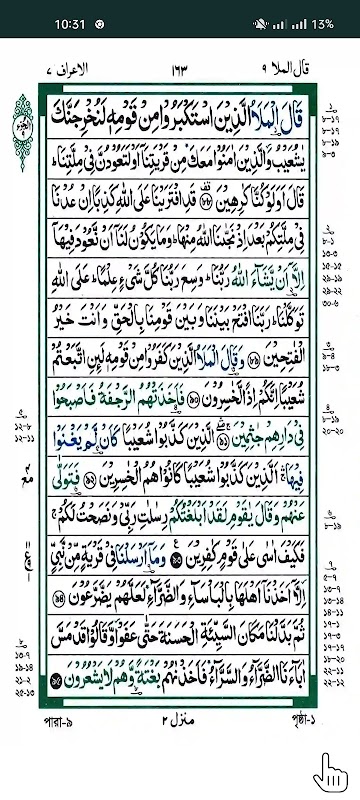 10:31 13%
الاعراف ٧ ١٦٣ قال الملا ٩
قَالَ الْمَلَاُ الَّذِيْنَ اسْتَكْبَرُوْا مِنْ قَوْمِهٖ لَنُخْرِجَنَّكَ
يٰشُعَيْبُ وَالَّذِيْنَ اٰمَنُوْا مَعَكَ مِنْ قَرْيَتِنَاۤ اَوْ لَتَعُوْدُنَّ فِيْ مِلَّتِنَا ؕ
قَالَ اَوَلَوْ كُنَّا كٰرِهِيْنَ ﴿٨٨﴾ قَدِ افْتَرَيْنَا عَلَى اللّٰهِ كَذِبًا اِنْ عُدْنَا
فِيْ مِلَّتِكُمْ بَعْدَ اِذْ نَجّٰىنَا اللّٰهُ مِنْهَا ؕ وَمَا يَكُوْنُ لَنَاۤ اَنْ نَّعُوْدَ فِيْهَاۤ
اِلَّاۤ اَنْ يَّشَآءَ اللّٰهُ رَبُّنَا ؕ وَسِعَ رَبُّنَا كُلَّ شَيْءٍ عِلْمًا ؕ عَلَى اللّٰهِ
تَوَكَّلْنَا ؕ رَبَّنَا افْتَحْ بَيْنَنَا وَبَيْنَ قَوْمِنَا بِالْحَقِّ وَاَنْتَ خَيْرُ
الْفٰتِحِيْنَ ﴿٨٩﴾ وَقَالَ الْمَلَاُ الَّذِيْنَ كَفَرُوْا مِنْ قَوْمِهٖ لَئِنِ اتَّبَعْتُمْ
شُعَيْبًا اِنَّكُمْ اِذًا لَّخٰسِرُوْنَ ﴿٩٠﴾ فَاَخَذَتْهُمُ الرَّجْفَةُ فَاَصْبَحُوْا
فِيْ دَارِهِمْ جٰثِمِيْنَ ﴿٩١﴾ الَّذِيْنَ كَذَّبُوْا شُعَيْبًا كَاَنْ لَّمْ يَغْنَوْا
فِيْهَا ۚ اَلَّذِيْنَ كَذَّبُوْا شُعَيْبًا كَانُوْا هُمُ الْخٰسِرِيْنَ ﴿٩٢﴾ فَتَوَلّٰى
عَنْهُمْ وَقَالَ يٰقَوْمِ لَقَدْ اَبْلَغْتُكُمْ رِسٰلٰتِ رَبِّيْ وَنَصَحْتُ لَكُمْ ۚ
فَكَيْفَ اٰسٰى عَلٰى قَوْمٍ كٰفِرِيْنَ ﴿٩٣﴾ وَمَاۤ اَرْسَلْنَا فِيْ قَرْيَةٍ مِّنْ نَّبِيٍّ
اِلَّاۤ اَخَذْنَاۤ اَهْلَهَا بِالْبَاْسَآءِ وَالضَّرَّآءِ لَعَلَّهُمْ يَضَّرَّعُوْنَ ﴿٩٤﴾
ثُمَّ بَدَّلْنَا مَكَانَ السَّيِّئَةِ الْحَسَنَةَ حَتّٰى عَفَوْا وَّقَالُوْا قَدْ مَسَّ
اٰبَآءَنَا الضَّرَّآءُ وَالسَّرَّآءُ فَاَخَذْنٰهُمْ بَغْتَةً وَّهُمْ لَا يَشْعُرُوْنَ ﴿٩٥﴾
পারা-৯ منزل ٢ পৃষ্ঠা-১